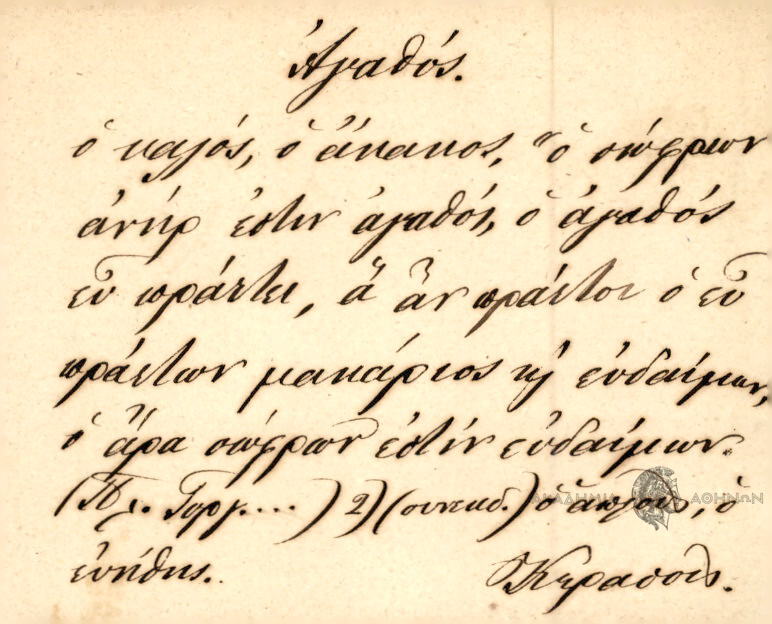 Ἀγαθός.
ὁ καλός, ὁ ἄκακος, ὁ σώφρων
ἀνήρ ἐστιν ἀγαθός, ὁ ἀγαθός
εὖ πράττει, ἃ ἂν πράττοι ὁ εὖ
πράττων μακάριος κ̀ εὐδαίμων,
ὁ ἄρα σώφρων ἐστίν εὐδαίμων.
(Πλ. Γοργ....) 2) (συνεκδ.) ὁ ἁπλοῦς, ὁ
εὐήθης. Κερασοῦς.
ΑΚΑΔΗΜΙΑ ΑΘΗΝΩΝ